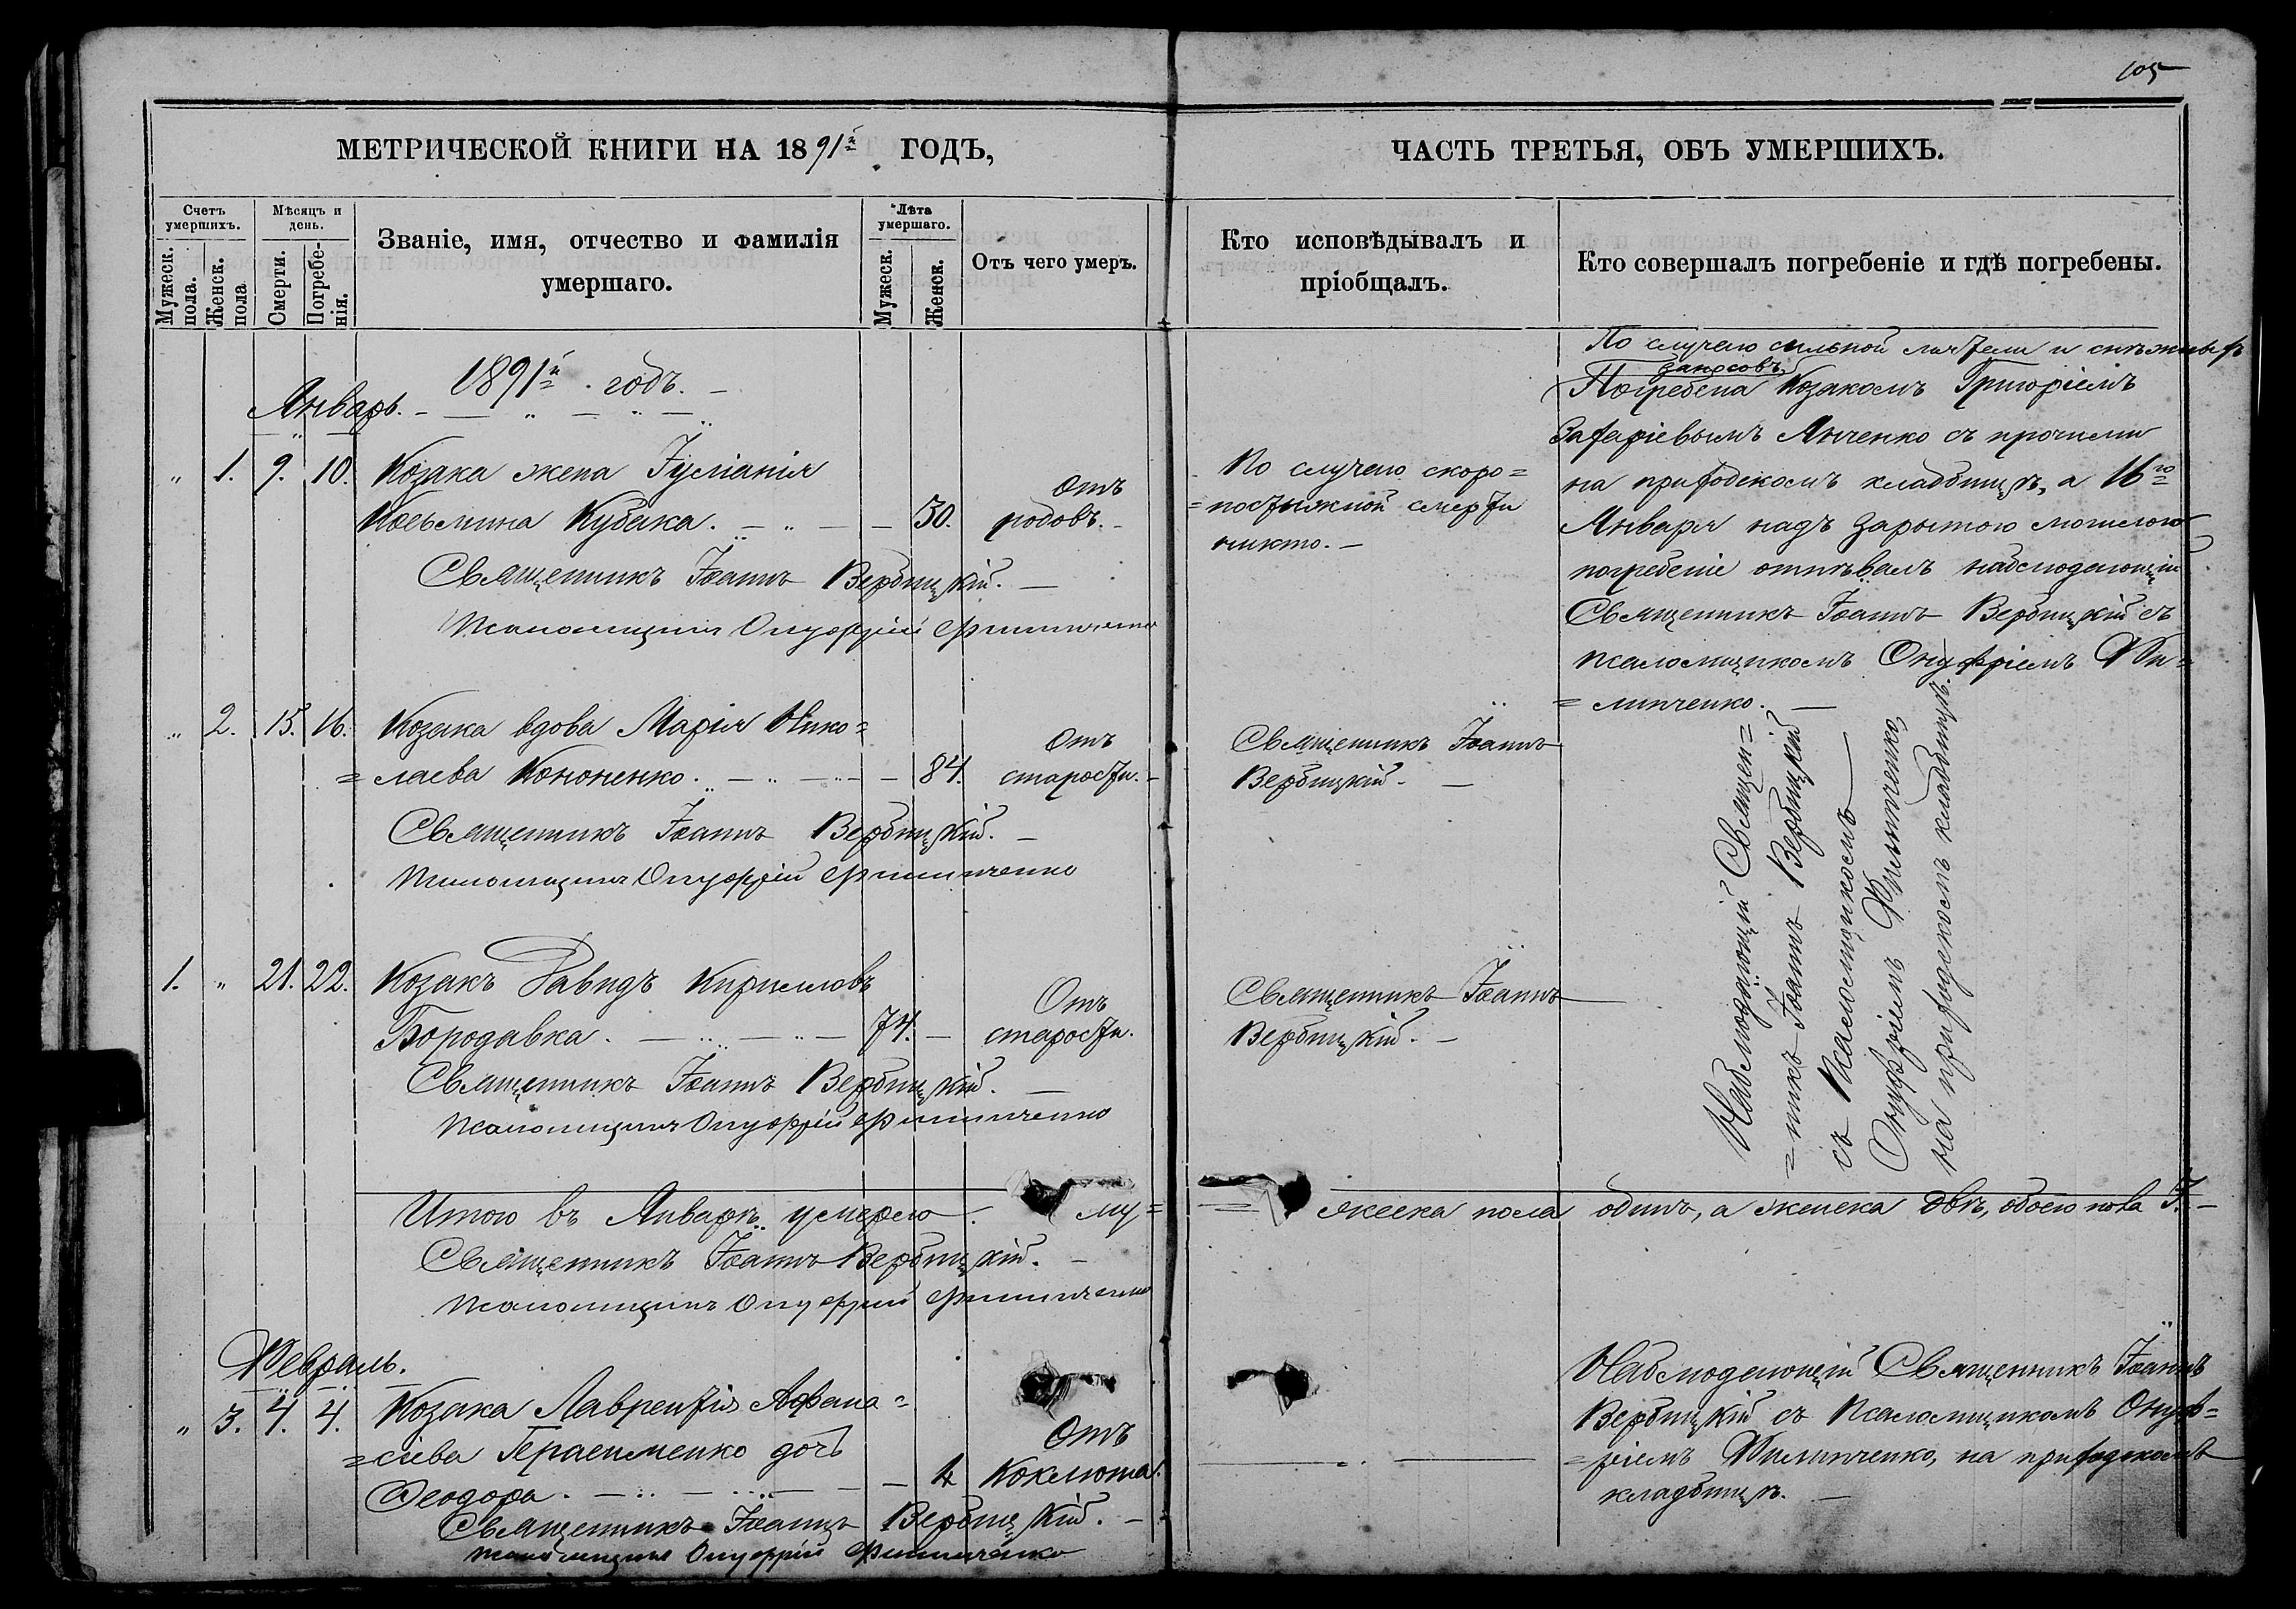 105
МЕТРИЧЕСКОЙ КНИГИ НА 1891й ГОДЪ,
Счетъ умершихъ.
Мужеск. пола.
Женск. пола
Мѣсяцъ и день.
Смерти.
Погребе-
нія.
Званіе, имя, отчество и фамилія
умершаго.
Лѣта умершаго.
Мужеск.
Женск.
Отъ чего умеръ.
1891й годъ.
Январь.
" 1. 9. 10. Козака жена Іуліанія
Косьмина Кубака. 30. Отъ родовъ.
Священникъ Іоаннъ Вербицкій.
Псаломщикъ Онуфрій Филипченко
" 2. 15. 16. Козака вдова Марія Нико=
=лаева Кононенко. 84. Отъ старости.
Священникъ Іоаннъ Вербицкій.
Псаломщикъ Онуфрій Филипченко
1. " 21. 22. Козакъ Давидъ Кирилловъ
Бородавка. 74. Отъ старости.
Священникъ Іоаннъ Вербицкій.
Псаломщикъ Онуфрій Филипченко
Итого въ Январѣ умерло му=
Священникъ Іоаннъ Вербицкій.
Псаломщикъ Онуфрій Филипченко
Февраль.
" 3. 4. 4. Козака Лаврентія Афана=
=сіева Герасименко дочь
Ѳеодора. 4 Отъ Коклюша.
Священникъ Іоаннъ Вербицкій.
Псаломщикъ Онуфрій Филипченко
ЧАСТЬ ТРЕТЬЯ, ОБЪ УМЕРШИХЪ.
Кто исповѣдывалъ и
пріобщалъ.
Кто совершалъ погребеніе и гдѣ погребены.
По случаю скоро=
=постижной смерти
никто.
По случаю сильной мятели и снѣжныхъ
заносовъ
Погребена Козакомъ Григоріемъ
Захаріевымъ Янченко съ прочими
на приходскомъ кладбищѣ, а 16го
Января надъ зарытою могилою
погребеніе отпѣвалъ наблюдающій
Священникъ Іоаннъ Вербицкій съ
псаломщикомъ Онуфріемъ Фи=
=липченко.
Священникъ Іоаннъ
Вербицкій.
Священникъ Іоаннъ
Вербицкій.
Наблюдающій Священ=
=никъ Іоаннъ Вербицкій
съ Псаломщикомъ
Онуфріемъ Филипченко,
на приходскомъ кладбищѣ.
=жеска пола одинъ, а женска двѣ, обоего пола 3.
Наблюдающій Священникъ Іоаннъ
Вербицкій съ Псаломщикомъ Онуф=
=ріемъ Филипченко, на приходскомъ
кладбищѣ.